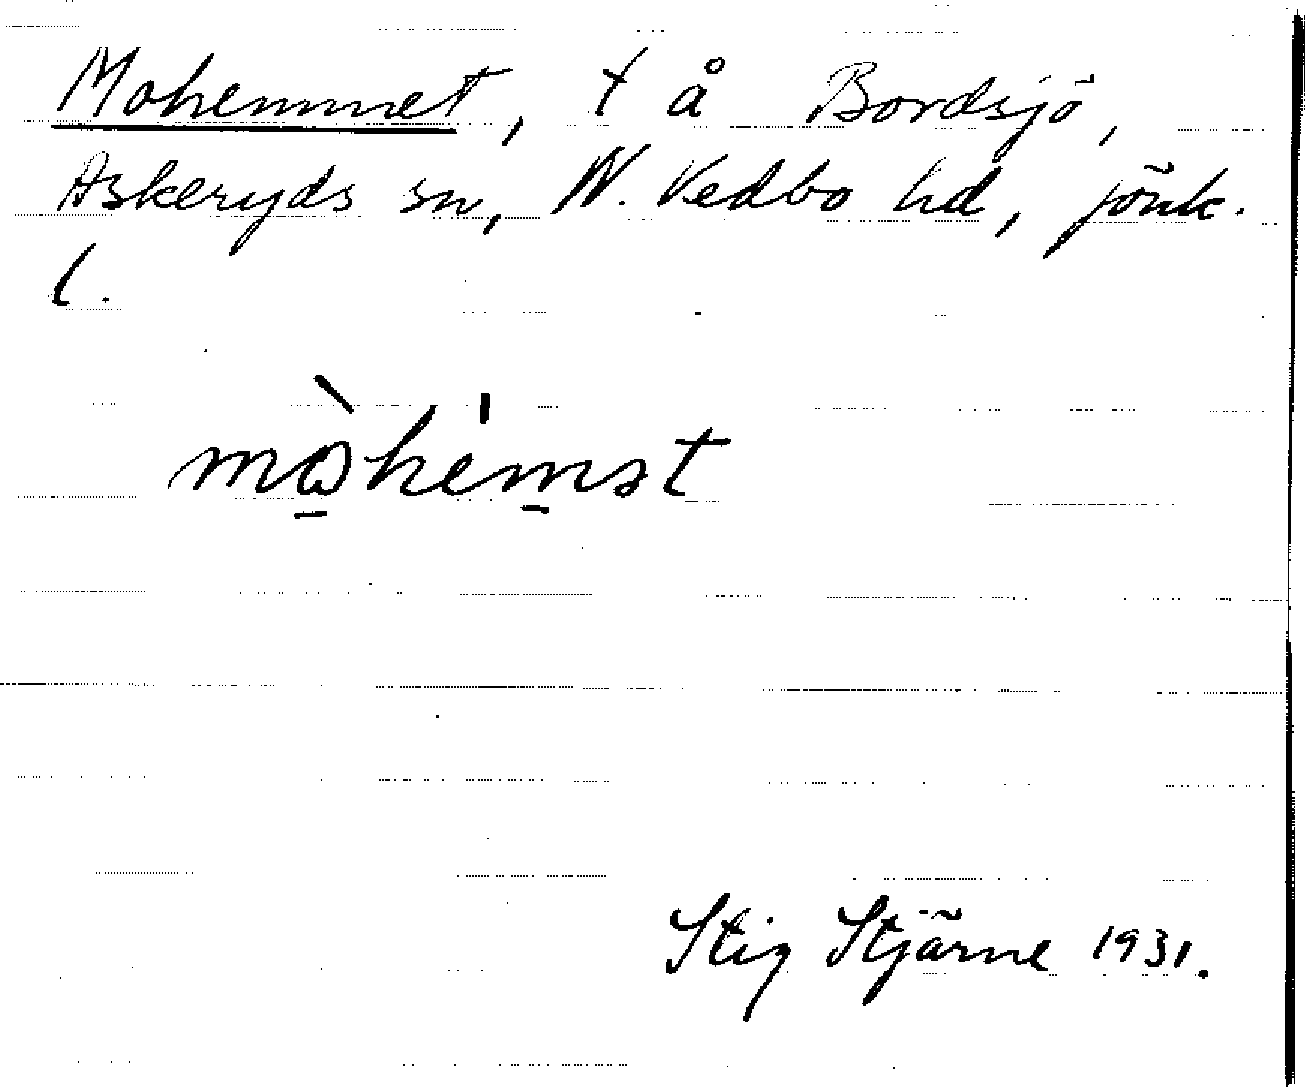 Mohemmet, t å Bordsjö,
Askeryds sn, N. Vedbo hd, Jönk.
l.
Stig Stjärne 1931.